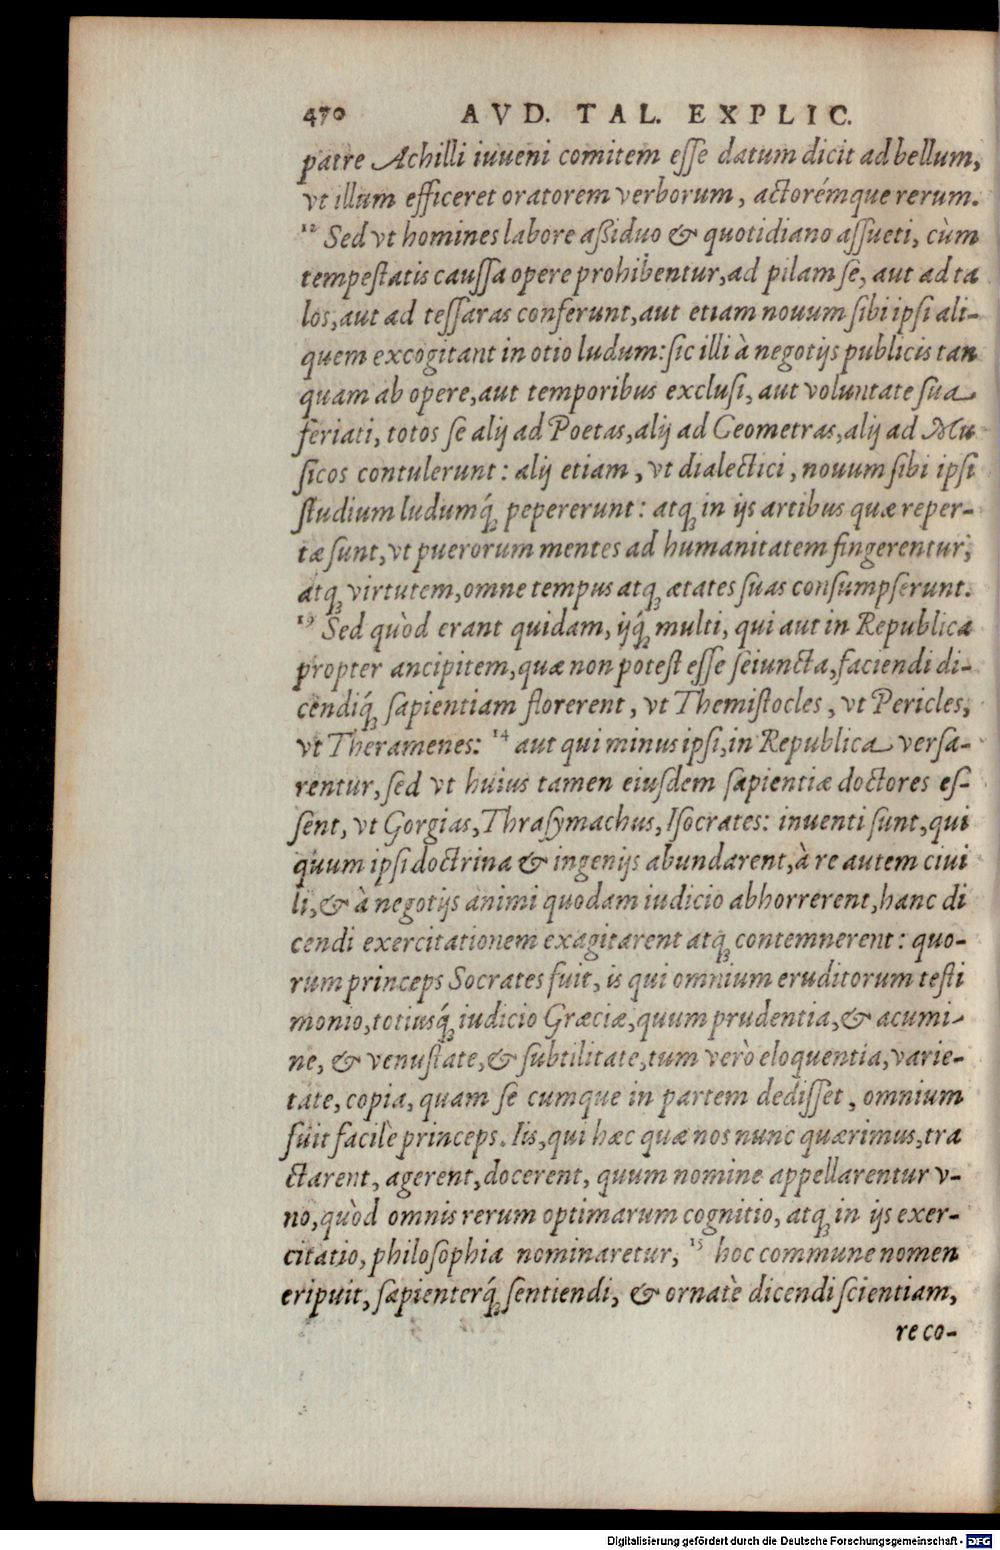 470 AVD. TAL. EXPLIC.
patre Achilli iuueni comitem esse datum dicit ad bellum,
vt illum efficeret oratorem verborum, actorémque rerum.
12 Sed vt homines labore aßiduo & quotidiano assueti, cùm
tempestatis caussa opere prohibentur, ad pilam se, aut ad ta
los, aut ad tessaras conferunt, aut etiam nouum sibi ipsi ali-
quem excogitant in otio ludum: sic illi à negotijs publicis tan
quam ab opere, aut temporibus exclusi, aut voluntate sua
feriati, totos se alij ad Poetas, alij ad Geometras, alij ad Mu
sicos contulerunt: alij etiam, vt dialectici, nouum sibi ipsi
studium ludumq́; pepererunt: atq; in ijs artibus quæ reper-
tæ sunt, vt puerorum mentes ad humanitatem fingerentur,
atq; virtutem, omne tempus atq; ætates suas consumpserunt.
13 Sed quòd erant quidam, ijq́; multi, qui aut in Republica
propter ancipitem, quæ non potest esse seiuncta, faciendi di-
cendiq́; sapientiam florerent, vt Themistocles, vt Pericles,
vt Theramenes: 14 aut qui minus ipsi, in Republica versa-
rentur, sed vt huius tamen eiusdem sapientiæ doctores es-
sent, vt Gorgias, Thrasymachus, Isocrates: inuenti sunt, qui
quum ipsi doctrina & ingenijs abundarent, à re autem ciui
li, & à negotijs animi quodam iudicio abhorrerent, hanc di
cendi exercitationem exagitarent atq; contemnerent: quo-
rum princeps Socrates fuit, is qui omnium eruditorum testi
monio, totiusq́; iudicio Græciæ, quum prudentia, & acumi-
ne, & venustate, & subtilitate, tum verò eloquentia, varie-
tate, copia, quam se cumque in partem dedisset, omnium
fuit facilè princeps. Iis, qui hæc quæ nos nunc quærimus, tra
ctarent, agerent, docerent, quum nomine appellarentur v-
no, quòd omnis rerum optimarum cognitio, atq; in ijs exer-
citatio, philosophia nominaretur, 15 hoc commune nomen
eripuit, sapienterq́; sentiendi, & ornatè dicendi scientiam,
re co-
Digitalisierung gefördert durch die Deutsche Forschungsgemeinschaft - DFG